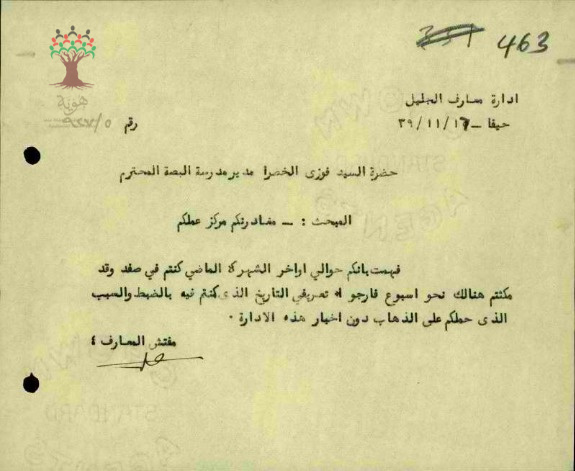 463
هوية
ادارة معارف الجليل
حيفا – ١٦/١١/٣٩
رقم ٩٢٧/٥
حضرة السيد فوزى الخضرا مدير مدرسة البصة المحترم
المبحث : – مغادرتكم مركز عملكم
فهمت بانكم حوالي اواخر الشهر الماضي كنتم في صفد وقد
مكثتم هنالك نحو اسبوع فارجو تعريفي التاريخ الذى كنتم فيه بالضبط والسبب
الذى حملكم على الذهاب دون اخبار هذه الادارة ٠
مفتش المعارف